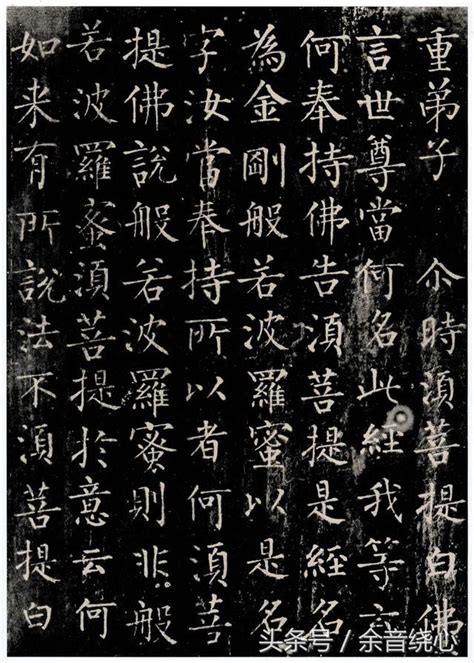 重弟子　尒時須菩提白佛
言世尊當何名此經我等云
何奉持佛告須菩提是經名
為金剛般若波羅蜜以是名
字汝當奉持所以者何須菩
提佛說般若波羅蜜則非般
若波羅蜜須菩提於意云何
如来有所說法不須菩提白
头条号 / 余音绕心